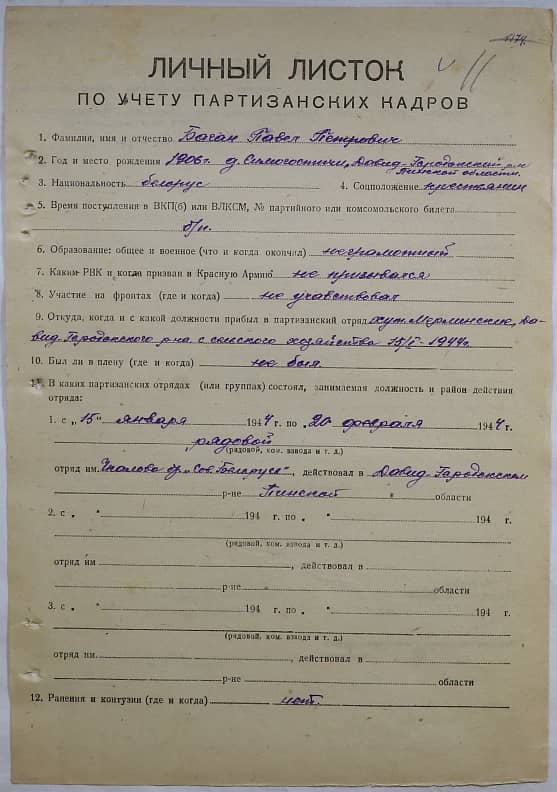 ЛИЧНЫЙ ЛИСТОК
ПО УЧЕТУ ПАРТИЗАНСКИХ КАДРОВ
1. Фамилия, имя и отчество Баган Павел Петрович
2. Год и место рождения 1906 г. д. Симогостичи, Давид-Городокский р-н
Пинской области.
3. Национальность белорус 4. Соцположение крестьянин
5. Время поступления в ВКП(б) или ВЛКСМ, № партийного или комсомольского билета
б/п.
6. Образование: общее и военное (что и когда окончил) неграмотный
7. Каким РВК и когда призван в Красную Армию не призывался
8. Участие на фронтах (где и когда) не участвовал
9. Откуда, когда и с какой должности прибыл в партизанский отряд хут. Мерлинские, Да-
вид-Городокского р-на с сельского хозяйства 15/I-1944г.
10. Был ли в плену (где и когда) не был
11. В каких партизанских отрядах (или группах) состоял, занимаемая должность и район действия
отряда:
1. с „15" января 1944 г. по 20 февраля 1944 г.
рядовой
(рядовой, ком. взвода и т. д.)
отряд им. Чкалова бр. „Сов. Беларусь", действовал в Давид-Городокском
р-не Пинской области
2. с " 194 г. по " 194 г.
(рядовой, ком. взвода и т. д.)
отряд им , действовал в
р-не области
3. с " 194 г. по " 194 г.
(рядовой, ком. взвода и т. д.)
отряд им. , действовал в
р-не области
12. Ранения и контузии (где и когда) нет.